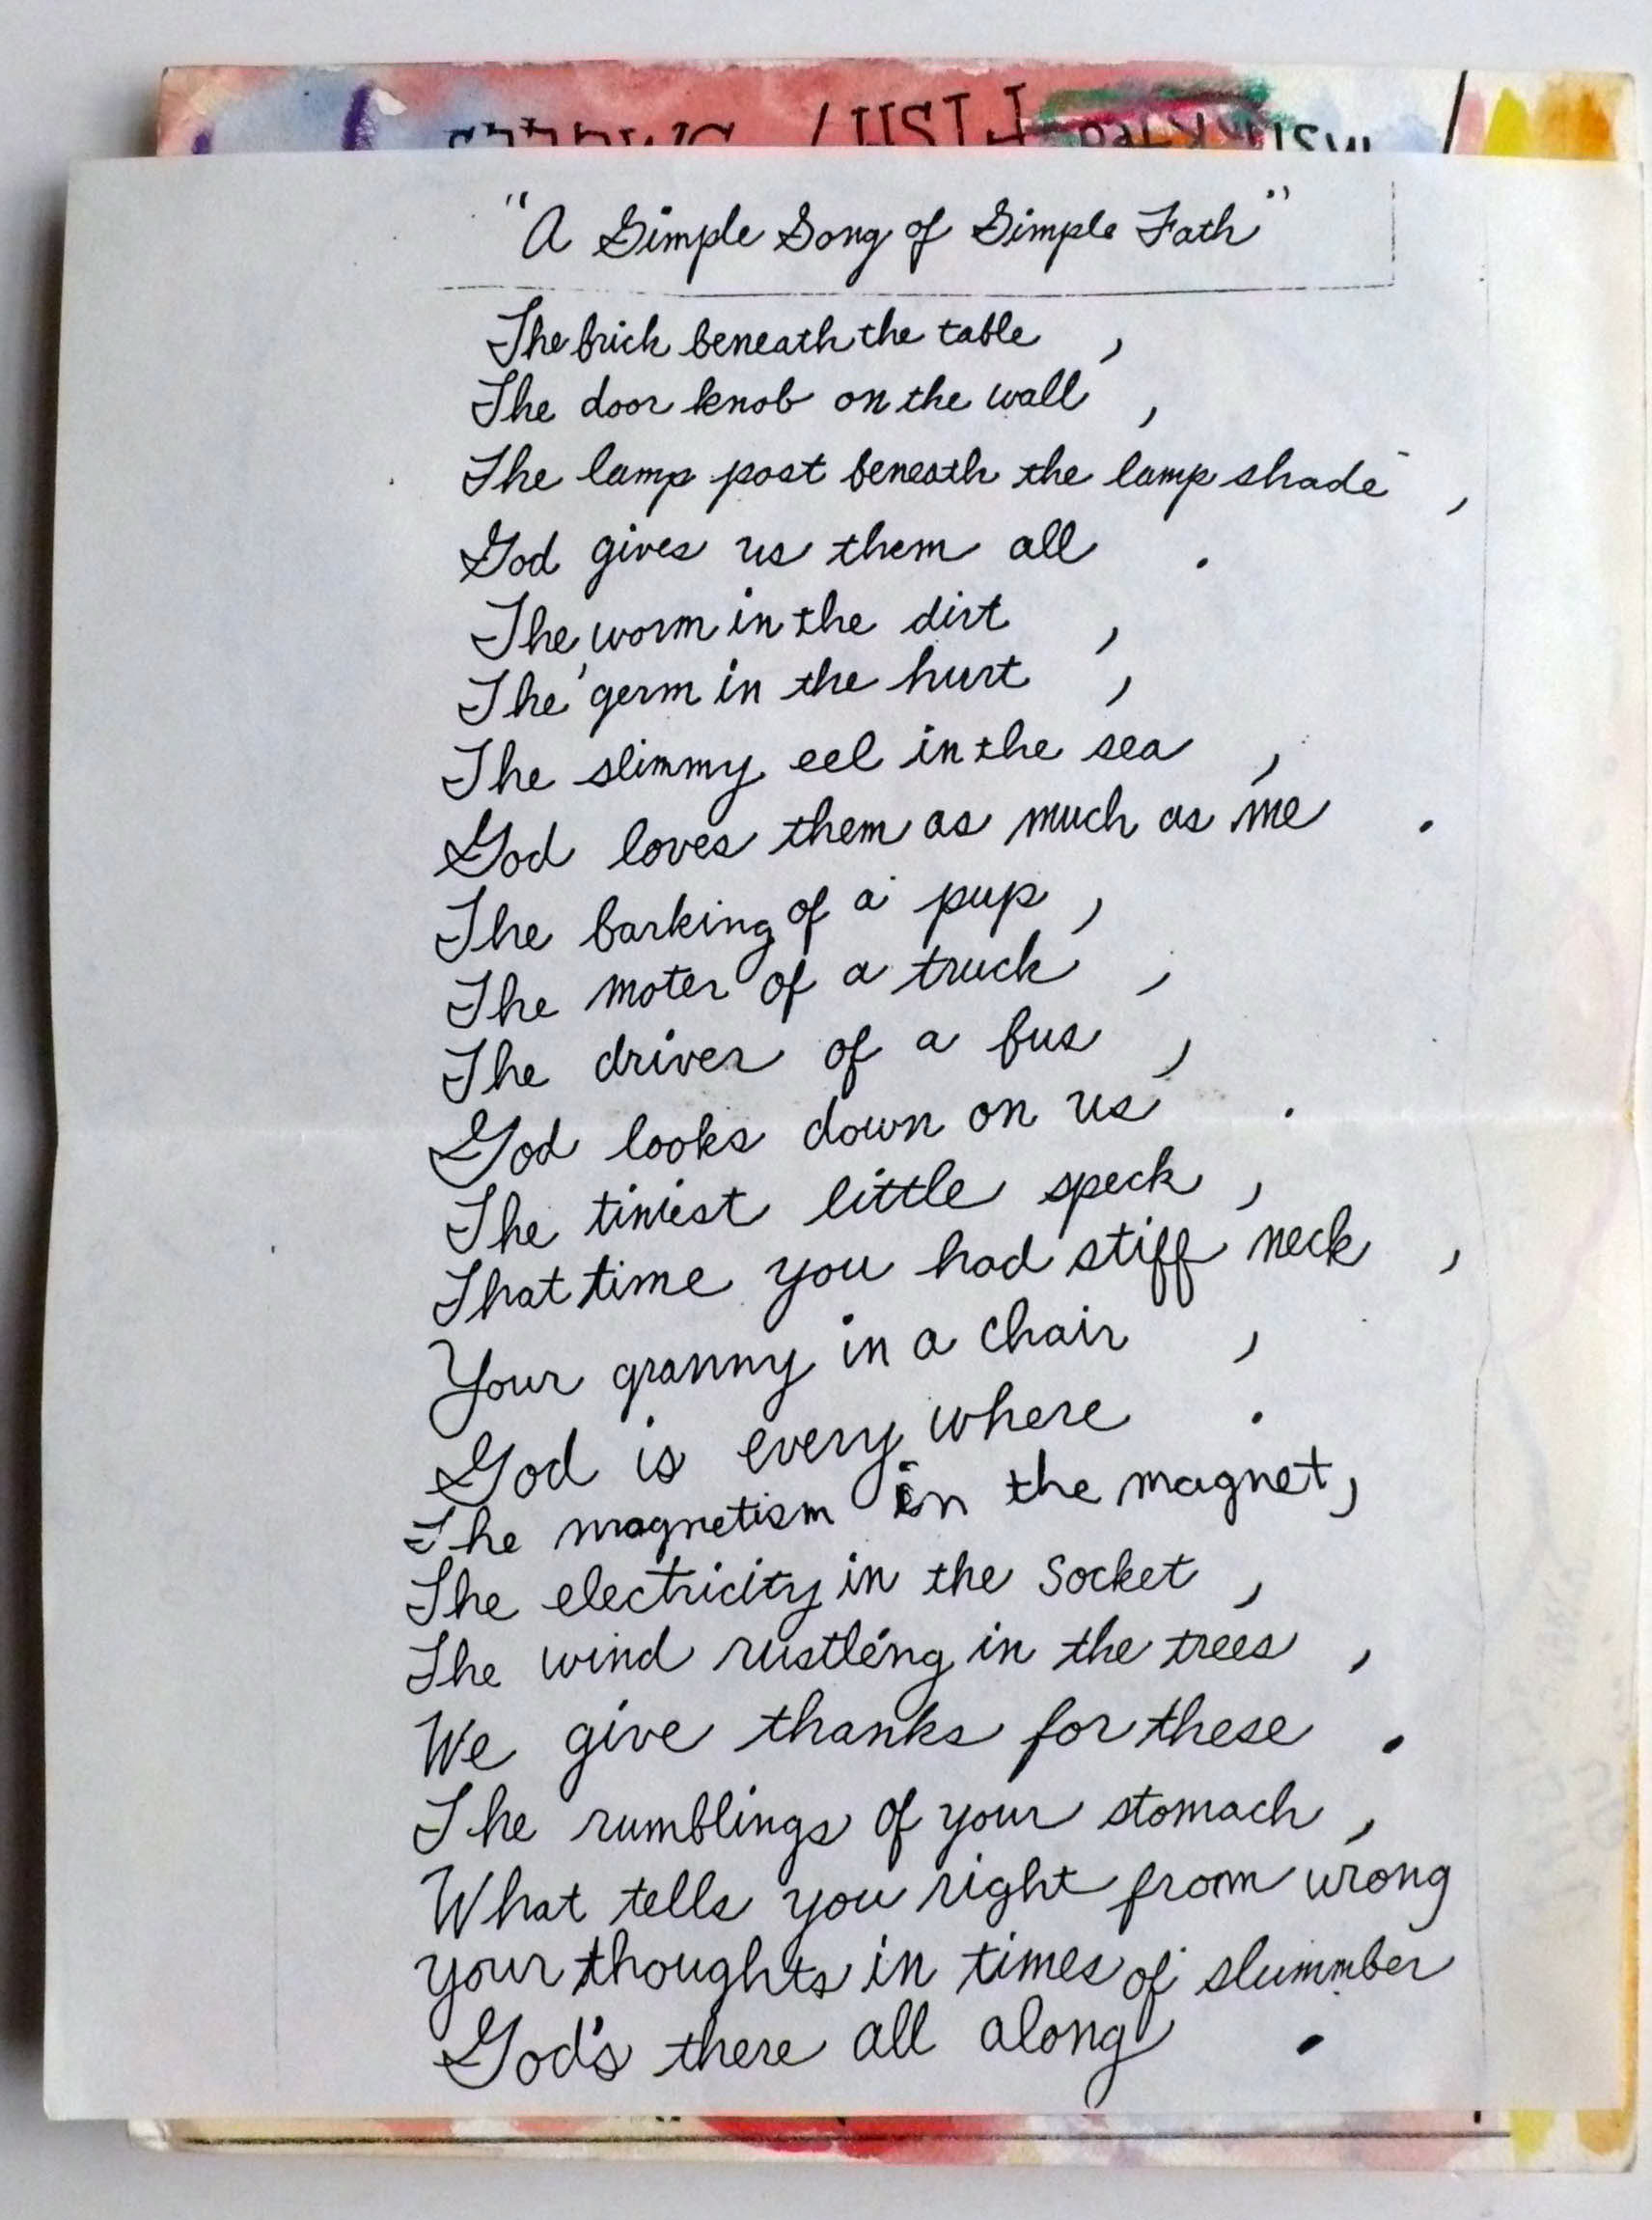 FISH /
"A Simple Song of Simple Fath"
The brick beneath the table ,
The door knob on the wall ,
The lamp post beneath the lamp shade ,
God gives us them all .
The worm in the dirt ,
The germ in the hurt ,
The slimmy eel in the sea ,
God loves them as much as me .
The barking of a pup ,
The moter of a truck ,
The driver of a bus ,
God looks down on us .
The tiniest little speck ,
That time you had stiff neck ,
Your granny in a chair ,
God is every where .
The magnetism in the magnet,
The electricity in the socket ,
The wind rustling in the trees ,
We give thanks for these .
The rumblings of your stomach ,
What tells you right from wrong
your thoughts in times of slummber
God's there all along .